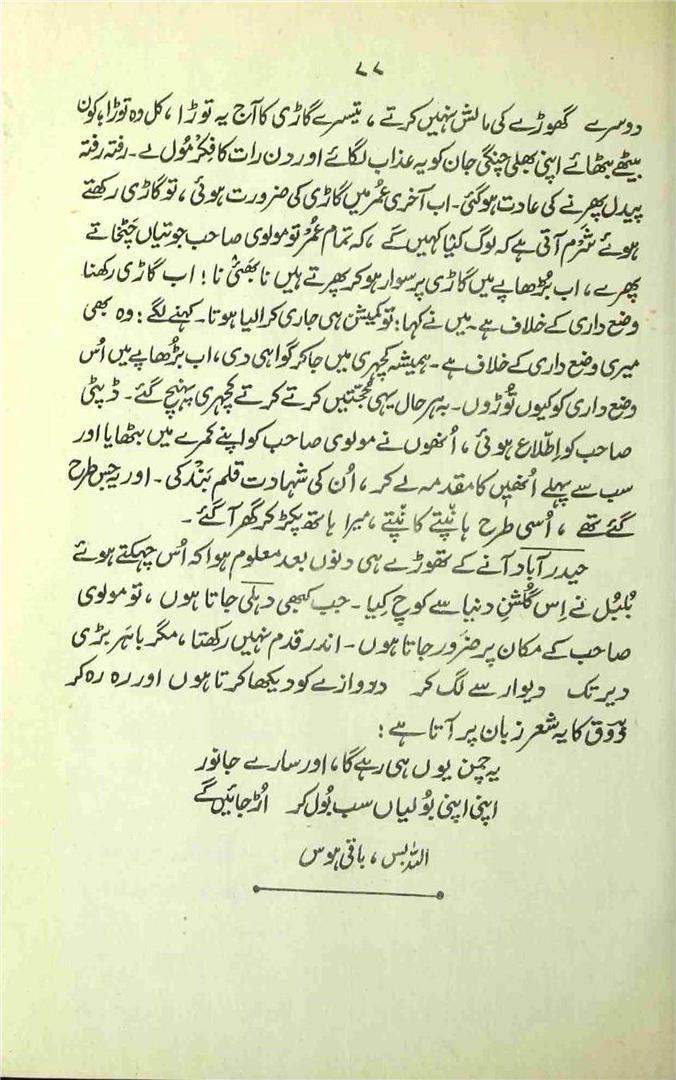 ۷۷
دوسرے گھوڑے کی مالش نہیں کرتے ، تیسرے گاڑی کا آج یہ توڑا ، کل وہ توڑا؛ کون
بیٹھے بٹھائے اپنی بھلی چنگی جان کو یہ عذاب لگائے اور دن رات کا فِکْر مُول لے۔ رفتہ رفتہ
پیدل پھرنے کی عادت ہوگئی۔ اب آخری عُمْر میں گاڑی کی ضرورت ہوئی ، تو گاڑی رکھتے
ہوئے شَرْم آتی ہے کہ لوگ کیا کہیں گے ، کہ تمام عُمْر تو مولوی صاحب جوتیاں چٹخاتے
پھرے ، اب بُڑھاپے میں گاڑی پر سوار ہو کر پھرتے ہیں نا بھئی نا! اب گاڑی رکھنا
وضع داری کے خلاف ہے۔ میں نے کہا: تو کمیشن ہی جاری کرالیا ہوتا۔ کہنے لگے: وہ بھی
میری وضع داری کے خلاف ہے۔ ہمیشہ کچہری میں جاکر گواہی دی ، اب بڑھاپے میں اُس
وضع داری کو کیوں توڑوں۔ بہ ہر حال یہی حُجّتیں کرتے کرتے کچہری پہنچ گئے۔ ڈپٹی
صاحب کو اطّلاع ہوئی ، اُنھوں نے مولوی صاحب کو اپنے کمرے میں بٹھایا اور
سب سے پہلے اُنھیں کا مقدمہ لے کر ، اُن کی شہادت قلم بَنْد کی۔ اور یہ جس طرح
گئے تھے ، اُسی طرح ہانپتے کانپتے ، میرا ہاتھ پکڑ کر گھر آگئے۔
حیدرآباد آنے کے تھوڑے ہی دنوں بعد معلوم ہوا کہ اُس چہکتے ہوئے
بُلبُل نے اِس گُلشنِ دنیا سے کوچ کیا۔ جب کبھی دہلی جاتا ہوں ، تو مولوی
صاحب کے مکان پر ضرور جاتا ہوں۔ اندر قدم نہیں رکھتا ، مگر باہر بڑی
دیر تک دیوار سے لگ کر دروازے کو دیکھا کرتا ہوں اور رہ رہ کر
ذَوق کا یہ شعر زبان پر آتا ہے:
یہ چمن یوں ہی رہے گا ، اور سارے جانور
اپنی اپنی بولیاں سب بول کر اُڑ جائیں گے
اللہ بس ، باقی ہوس